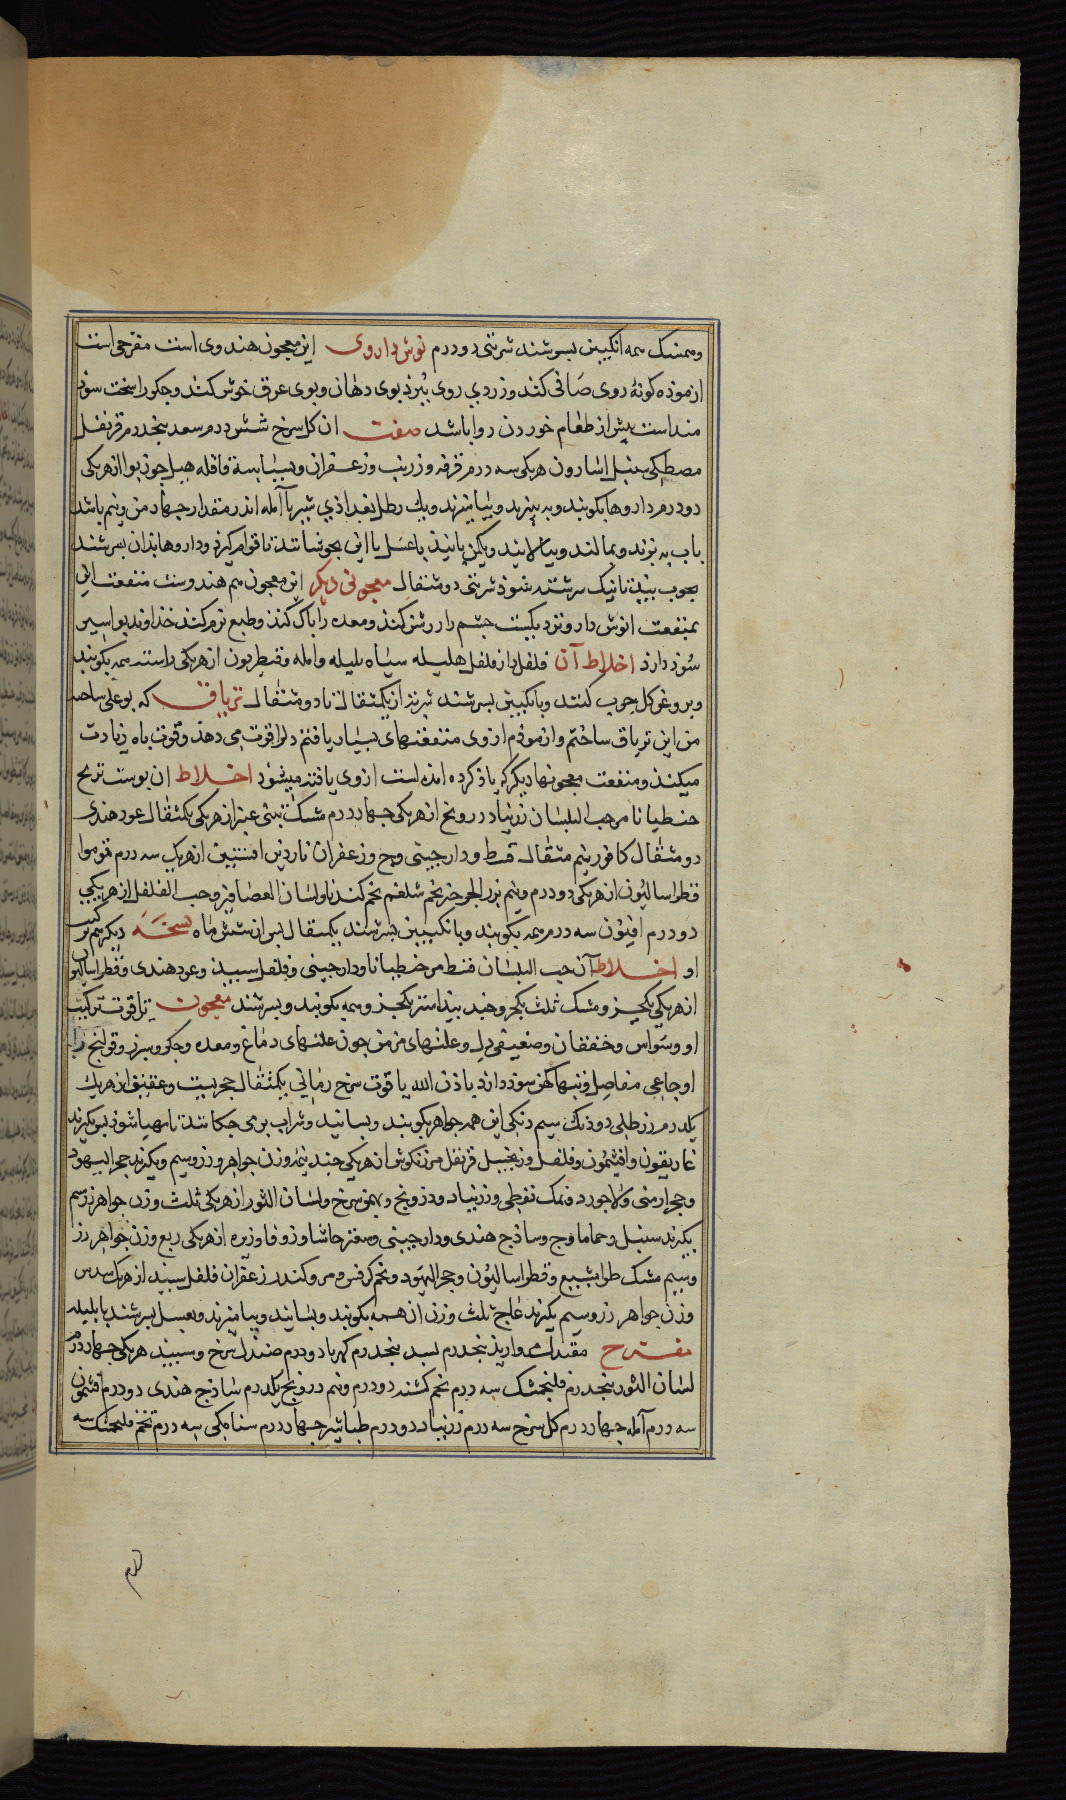 ومسک همه انکبین بسرشند شربتی دو درم نوش داروی این معجون هندوی است مفرحی است
ازموده کونهٔ روی صافی کند وزردی روی ببرذ بوی دهان وبوی عرق خوش کند وجکررا سخت سوذ
منداست پیش از طعام خوردن روا باشد صفت ان کل سرخ شش درم سعد پنجدرم قرنفل
مصطکی سنبل اسارون هریکی سه درم قرفه وزرنب وزعفران وبسباسه قاقله هیل جوزبوا از هریکی
دو درم داروها بکوبند وبه بیزند وبیامیزند ویک رطل بغداذی شیر آمله اندر مقدار جهار من ونیم باشد
باب به بزند وبمالند وبپالایند ویکمن پانیذ یا عسل با این بجوشانند تا قوام کیرذ وداروها بذان بسرشند
بجوب بید تا نیک سرشته شوذ شربتی دو مثقال معجونی دیکر این معجون هم هندوست منفعت این
بمنفعت انوش دارو نزدیکست جشم را روشن کند ومعده را باک کند وطبع نرم کند خذاوند بواسیر
سوذ دارذ اخلاط آن فلفل دارفلفل هلیله سیاه بلیله وامله وقنطریون از هریکی راسته همه بکوبند
وبروغن کل جرب کنند وبانکبین بسرشند شربت از یکمثقال تا دو مثقال تریاق که بوعلی ساخت
من این تریاق ساختم وازموذم ازوی منفعتهای بسیار یافتم دلرا قوت می دهذ وقوت باه زیادت
میکند ومنفعت معجونها دیکر که یاذ کرده امذه است ازوی یافته میشوذ اخلاط ان بوست ترنج
جنطیانا مر حب البلسان زرنباد درونج از هریکی جهار درم مشک تبتی عنبر از هریکی یکمثقال عود هندی
دو مثقال کافور نیم مثقال قسط ودارجینی وج وزعفران ناردین افسنتین از هریک سه درم فوموا
فطراسالیون از هریکی دو درم ونیم بزر الجرجیر تخم شلغم تخم کندنا ولسان العصافیر وحب الفلفل از هریکی
دو درم افیون سه درم همه بکوبند وبانکبین بسرشند یکمثقال بس از شش ماه نسخه دیکر هم ترکیب
او اخلاط آن حب البلسان قسط مر جنطیانا ودارجینی وفلفل سبیذ وعود هندی وفطراسالیون
از هریکی یکجز ومشک ثلث یکجز وجند بیدستر یکجز وهمه بکوبند وبسرشند معجون یاقوت ترکیب
او وسواس وخفقان وضعیفی دل وعلتهای مزمن جون علتهای دماغ ومعده وجکر وسبرز وقولنج را
اوجاعی مفاصل وتبها کهن سوذ دارذ باذن الله یاقوت سرخ رمانی یکمثقال وعقیق از هریک
یکدرم زر طلی دو دنک سیم دنکی این همه جواهر بکوبند وبسایند وشراب برمی جکانند تا مهیا شوذ بس بکیرند
غاریقون وافتیمون وفلفل وزنجبیل قرنفل مرزنکوش از هریکی جند نیمه وزن جواهر وزر وسیم وبکیرند حجر الیهود
وحجر ارمنی ولاجورد ونمک نفطی وزرنباد ودرونج وبهمن سرخ ولسان الثور از هریکی ثلث وزن جواهر زر سیم
بکیرند سنبل وحماما وج وساذج هندی ودارجینی وصعتر حاشا وزوفا وزیره از هریکی ربع وزن جواهر زر
وسیم مشک وفطراسالیون وحجر الیهود وتخم کرفس ومر وکندر زعفران فلفل سبیذ از هریک سدس
وزن جواهر زر وسیم بکیرند عاج ثلث وزن ان همه بکوبند وبسایند وبیامیزند وبعسل بسرشند با بلیله
مفرح مروارید پنجدرم بسد پنجدرم کهربا دو درم صندل سرخ وسبیذ هریکی جهار درم
لسان الثور پنجدرم فلنجمشک سه درم تخم کشنه دو درم ونیم درونج یکدرم ساذج هندی دو درم افتیمون
سه درم آمله جهار درم کل سرخ سه درم زرنباد دو درم طباشیر جهار درم سنامکی سه درم تخم فلنجمشک سه